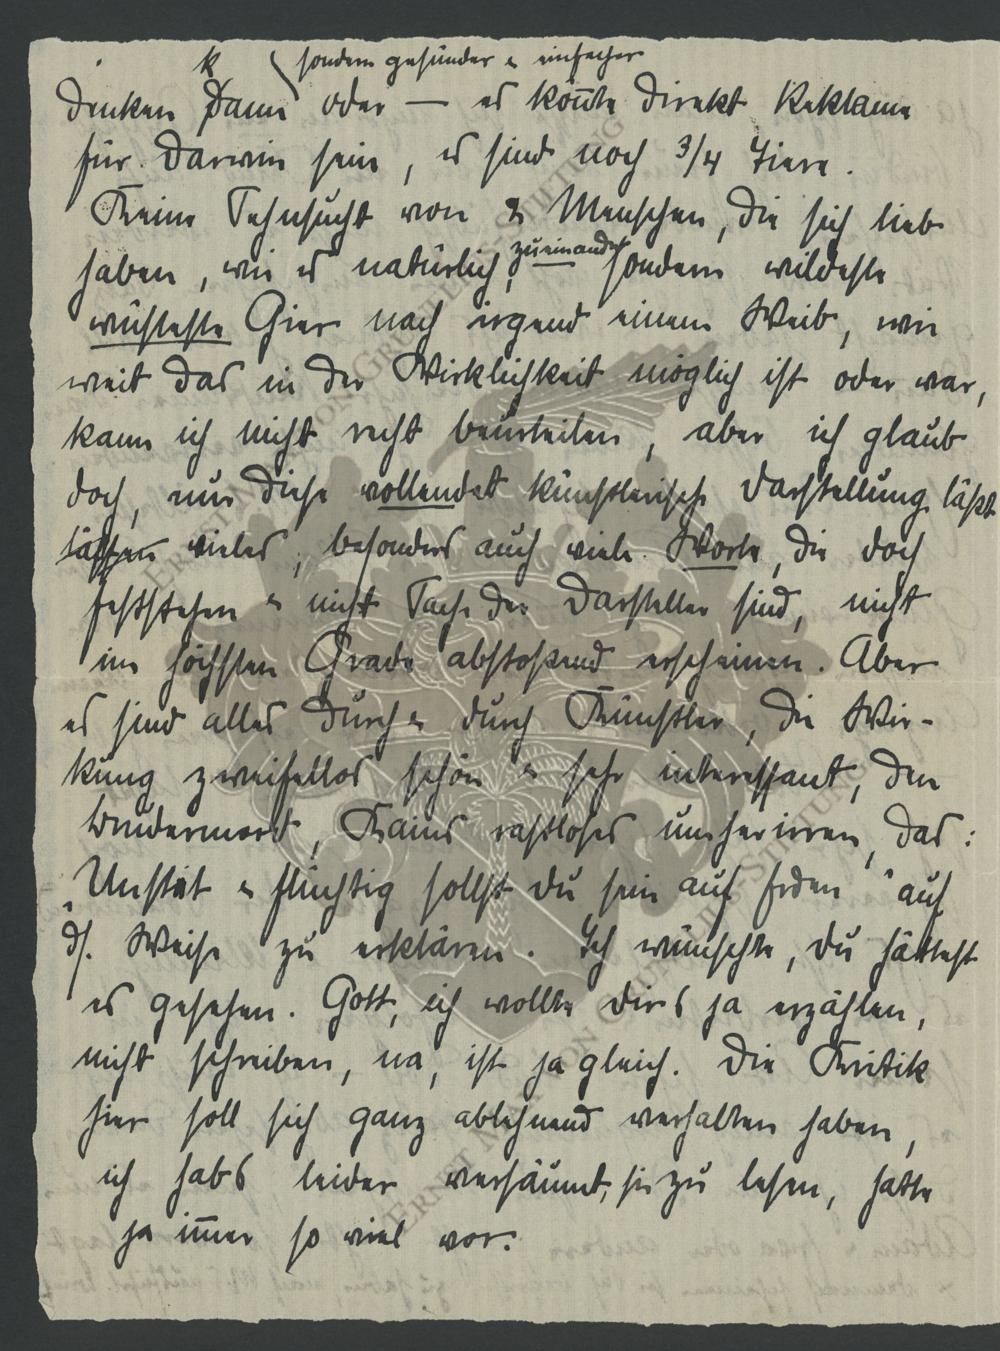 sondern gesünder & einfacher
denken kann oder — es könnte direkt Reklame
für Darwin sein, es sind noch 3/4 Tiere.
Keine Sehnsucht von 2 Menschen, die sich lieb
haben, wie es natürlich, zueinander sondern wildeste
wüsteste Gier nach irgend einem Weib, wie
weit das in der Wirklichkeit möglich ist oder war,
kann ich nicht recht beurteilen, aber ich glaub
doch, nur diese vollendet künstlerische Darstellung läßt
lassen vieles, besonders auch viele Worte, die doch
feststehen & nicht Sache der Darsteller sind, nicht
im höchsten Grade abstoßend erscheinen. Aber
es sind alles durch & durch Künstler, die Wir-
kung zweifellos schön & sehr interessant, den
Brudermord, Kains rastloses umherirren, das:
"Unstät & flüchtig sollst du sein auf Erden" auf
ds. Weise zu erklären. Ich wünschte, du hättest
es gesehen. Gott, ich wollte dirs ja erzählen,
nicht schreiben, na, ist ja gleich. Die Kritik
hier soll sich ganz ablehnend verhalten haben,
ich habs leider versäumt, sie zu lesen, hatte
ja im̅er so viel vor.
ERNST MORITZ VON GREUTER-STIFTUNG